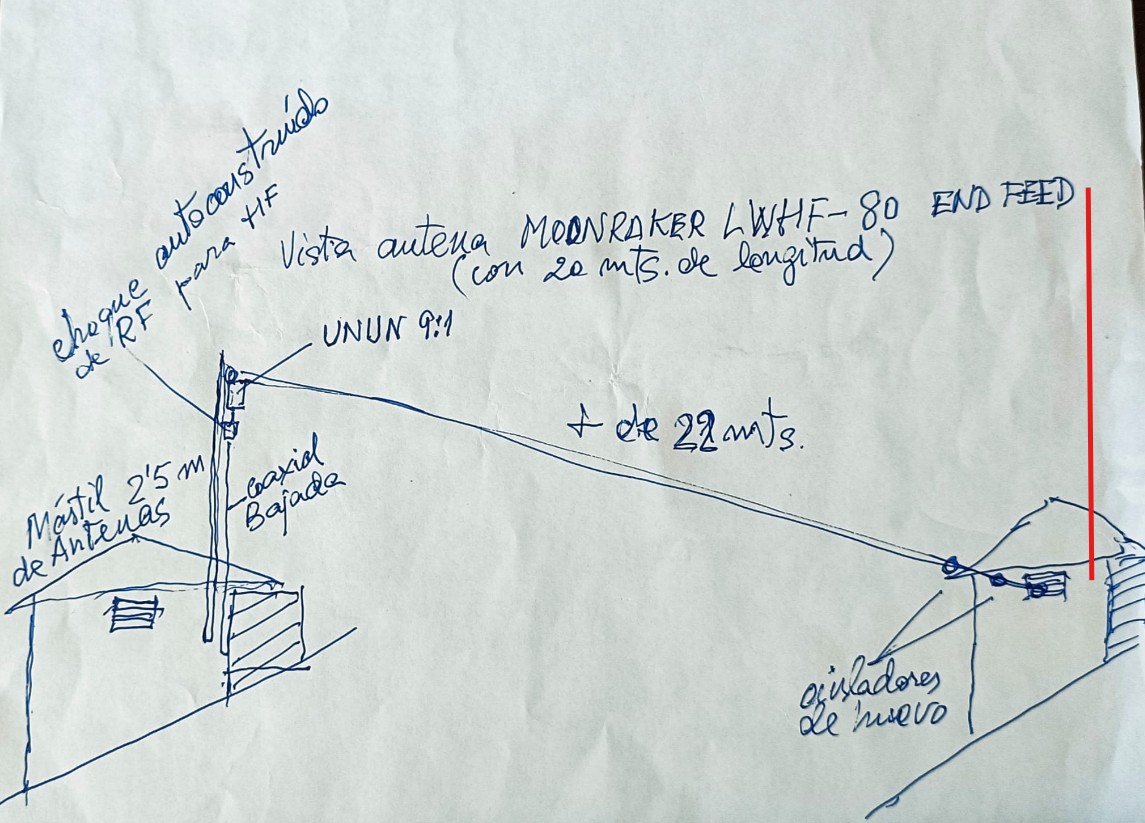 choque autoconstruído
de RF para HF
Vista antena MOONRAKER LWHF-80 END FEED
(con 20 mts. de longitud)
UNUN 9:1
+ de 22 mts.
Mástil 2'5 m
de Antenas
coaxial
Bajada
aisladores
de huevo